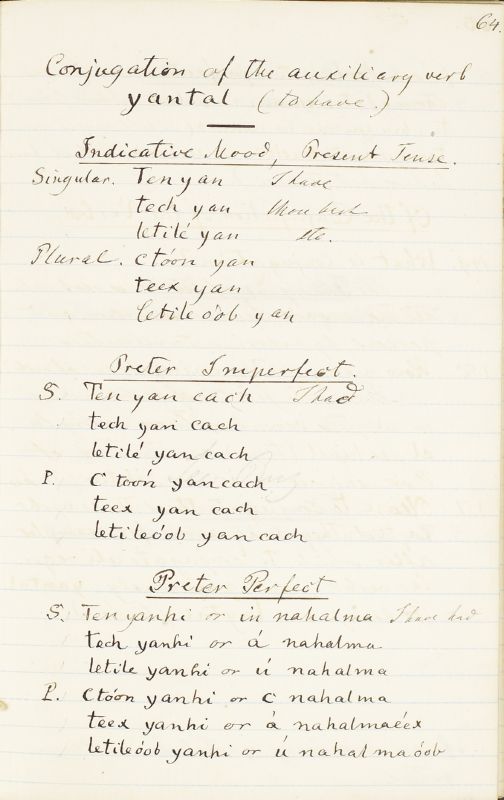 64.
Conjugation of the auxiliary verb
yantal (to have.)
Indicative Mood, Present Tense.
Singular. Ten yan I have
tech yan thou hast
letilé yan etc.
Plural. Ctóon yan
teex yan
letileóob yan
Preter Imperfect.
S. Ten yan cach I had
tech yan cach
letilé yan cach
P. C toón yan cach
teex yan cach
letileóob yan cach
Preter Perfect
S. Ten yanhi or in nahalma I have had
tech yanhi or á nahalma
letile yanhi or ú nahalma
P. Ctóon yanhi or C nahalma
teex yanhi or á nahalmaéex
letileóob yanhi or ú nahalmaóob